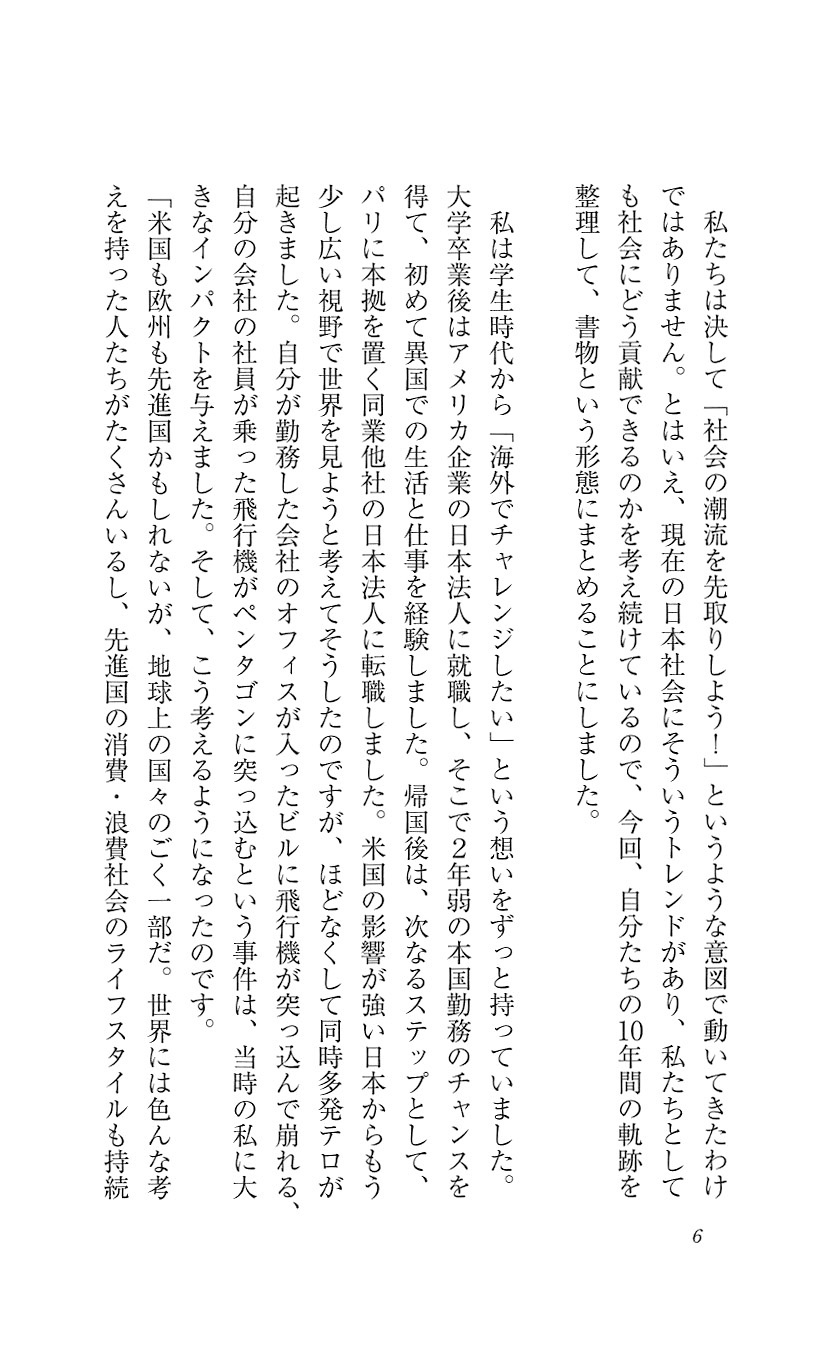 私たちは決して「社会の潮流を先取りしよう！」というような意図で動いてきたわけ
ではありません。とはいえ、現在の日本社会にそういうトレンドがあり、私たちとして
も社会にどう貢献できるのかを考え続けているので、今回、自分たちの10年間の軌跡を
整理して、書物という形態にまとめることにしました。
私は学生時代から「海外でチャレンジしたい」という想いをずっと持っていました。
大学卒業後はアメリカ企業の日本法人に就職し、そこで2年弱の本国勤務のチャンスを
得て、初めて異国での生活と仕事を経験しました。帰国後は、次なるステップとして、
パリに本拠を置く同業他社の日本法人に転職しました。米国の影響が強い日本からもう
少し広い視野で世界を見ようと考えてそうしたのですが、ほどなくして同時多発テロが
起きました。自分が勤務した会社のオフィスが入ったビルに飛行機が突っ込んで崩れる、
自分の会社の社員が乗った飛行機がペンタゴンに突っ込むという事件は、当時の私に大
きなインパクトを与えました。そして、こう考えるようになったのです。
「米国も欧州も先進国かもしれないが、地球上の国々のごく一部だ。世界には色んな考
えを持った人たちがたくさんいるし、先進国の消費・浪費社会のライフスタイルも持続
6